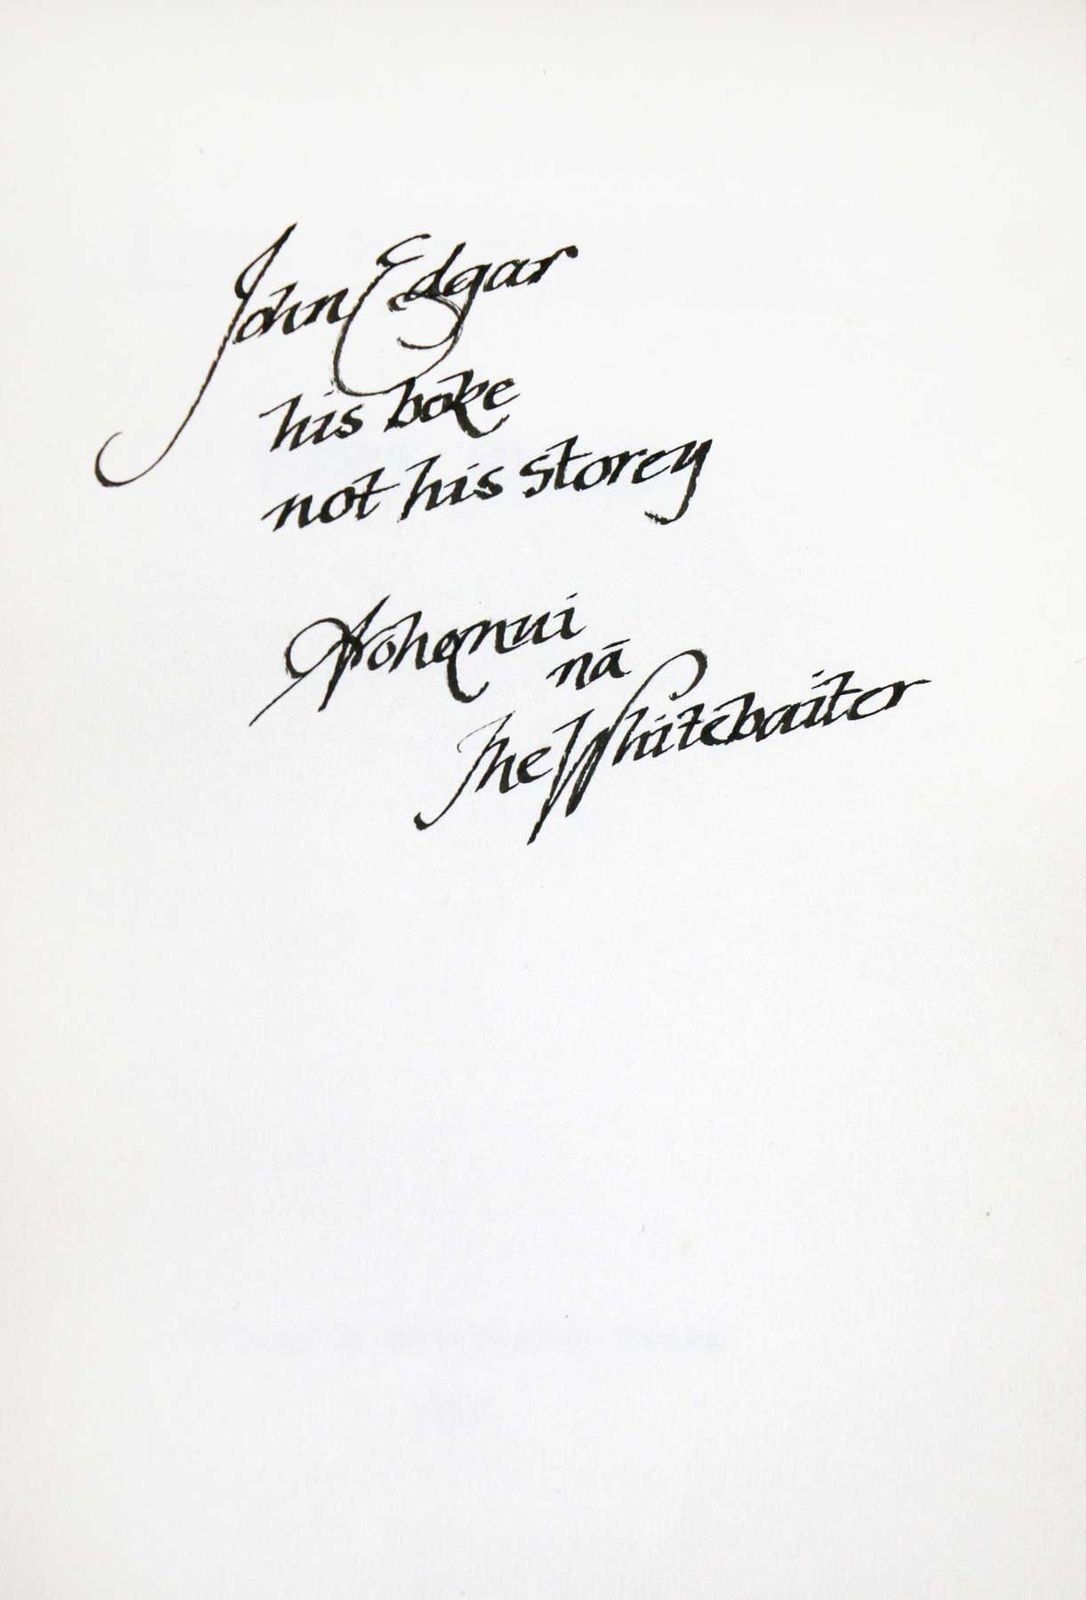 John Edgar
his boke
not his storey
Arohanui
nā
The Whitebaiter